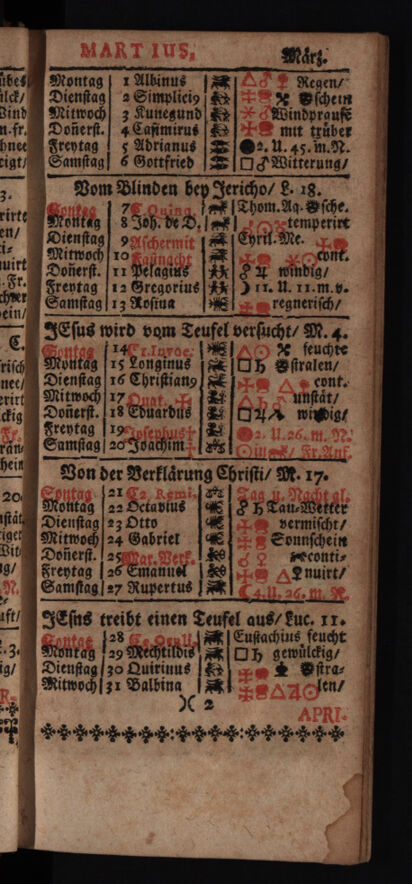 MARTIUS, März.
Montag 1 Albinus △♂ Regen/
Dienstag 2 Simplici9 schein
Mitwoch 3 Kunegund Windprausē
Doñerst. 4 Casimirus mit trüber
Freytag 5 Adrianus 2. U. 45. m. N.
Samstag 6 Gottfried □♂ Witterung/
Vom Blinden bey Jericho/ L. 18.
Sontag 7 C. Quinq. Thom. Aq. sche.
Montag 8 Joh. de D. temperirt
Dienstag 9 Aschermit Cyril. Me.
Mitwoch 10 Fasnacht cont.
Doñerst. 11 Pelagius windig/
Freytag 12 Gregorius ☽ 11. U. 11. m. v.
Samstag 13 Rosina regnerisch/
JEsus wird vom Teufel versucht/ M. 4.
Sontag 14 C 1. Invoc. △☉ feuchte
Montag 15 Longinus □♄ stralen/
Dienstag 16 Christian9 cont.
Mitwoch 17 Quat. unstät/
Doñerst. 18 Eduardus windig/
Freytag 19 Josephus 2. U. 26. m. N.
Samstag 20 Joachim Fr. Anf.
Von der Verklärung Christi/ M. 17.
Sontag 21 C 2. Remi. Tag u. Nacht gl.
Montag 22 Octavius ♂♄ Tau-Wetter
Dienstag 23 Otto vermischt/
Mitwoch 24 Gabriel Sonnschein
Doñerst. 25 Mar. Verk. conti-
Freytag 26 Emanuel nuirt/
Samstag 27 Rupertus ☾ 4. U. 26. m. N.
JEsus treibt einen Teufel aus/ Luc. 11.
Sontag 28 C 3. Ocul. Eustachius feucht
Montag 29 Mechtildis □♄ gewülckig/
Dienstag 30 Quirinus stra-
Mitwoch 31 Balbina △♃☉ len/
)( 2
APRI-